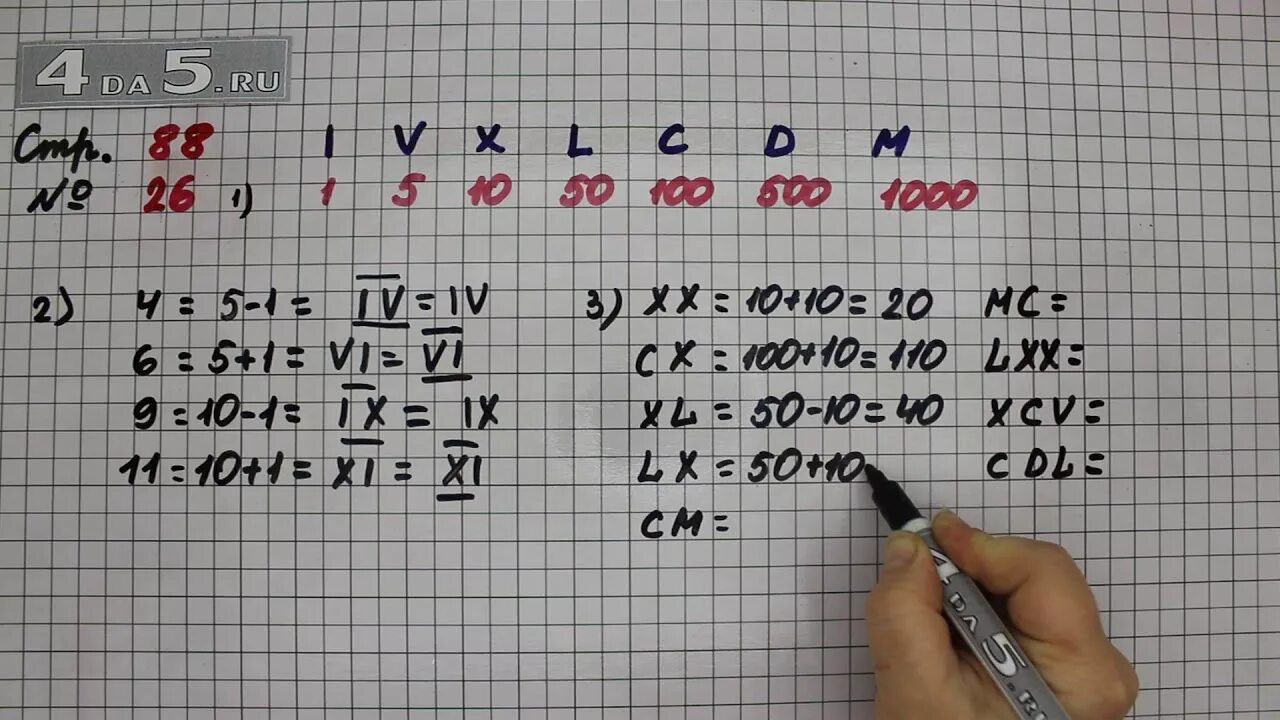 4DA5.RU
Стр. 88 I V X L C D M
№ 26 1) 1 5 10 50 100 500 1000
2) 4 = 5-1 = IV = IV
6 = 5+1 = VI = VI
9 = 10-1 = IX = IX
11 = 10+1 = XI = XI
3) XX = 10+10 = 20
CX = 100+10 = 110
XL = 50-10 = 40
LX = 50+10
CM =
MC =
LXX =
XCV =
CDL =
4DA5.RU